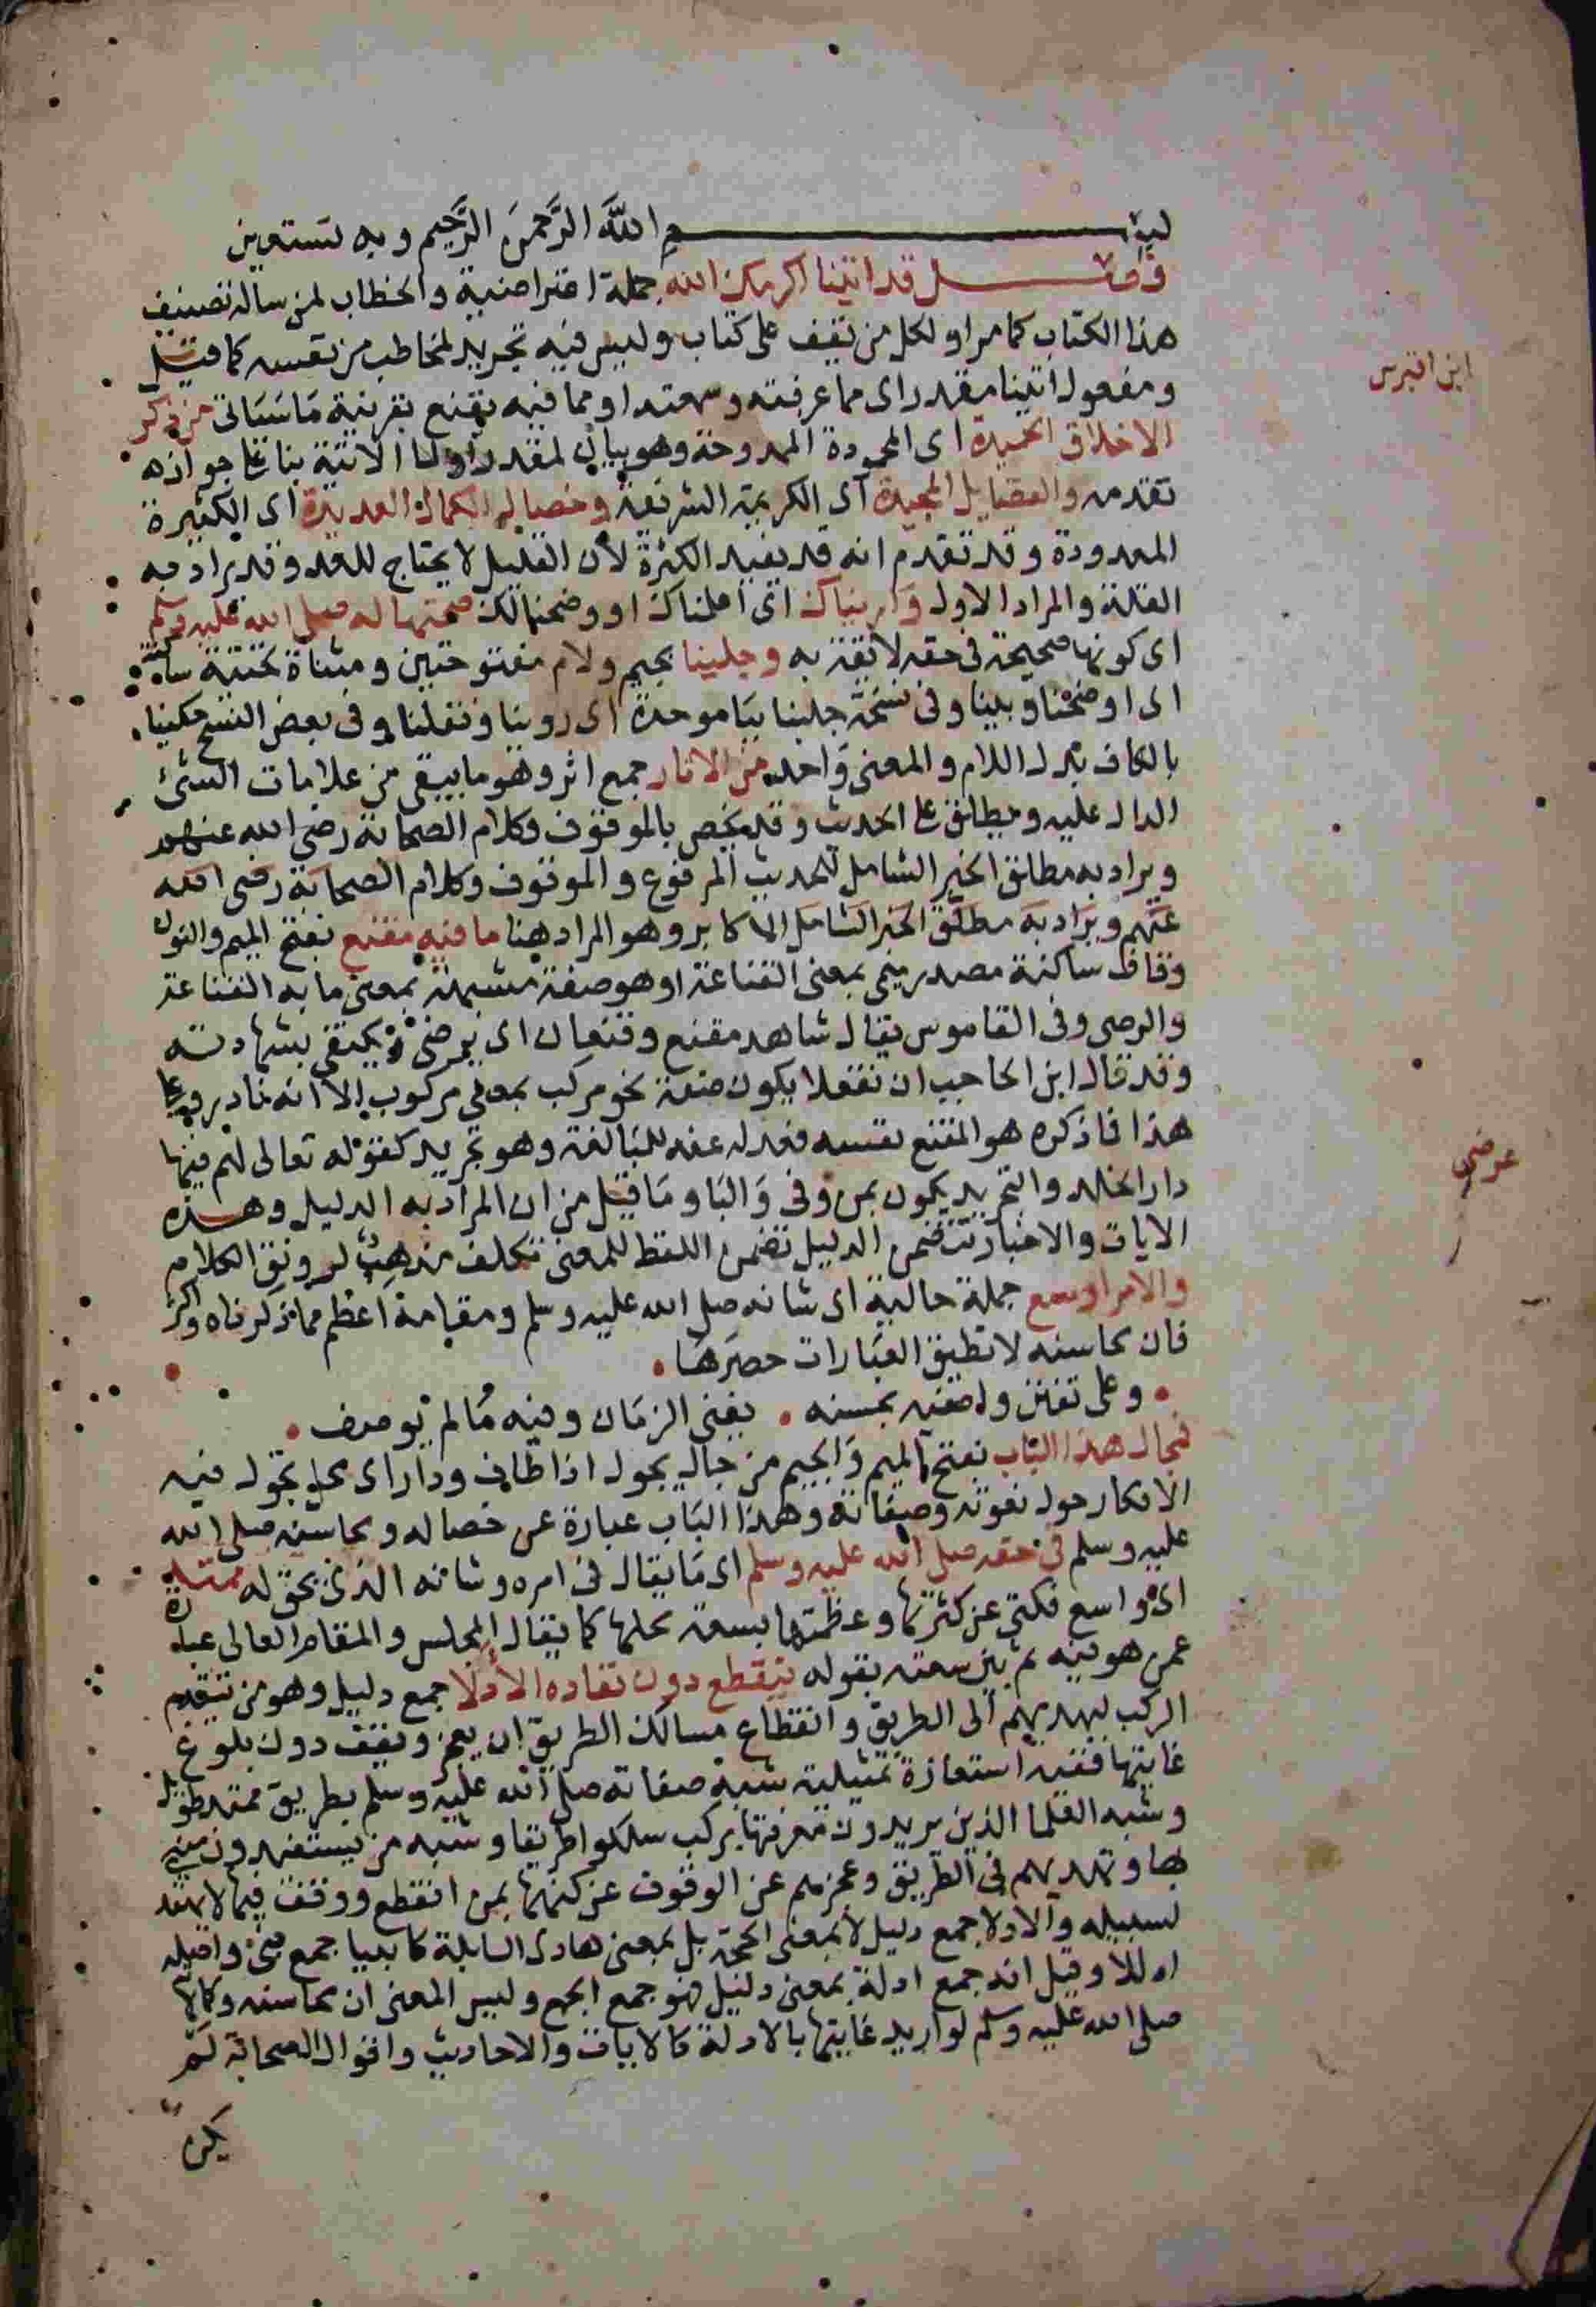 بسم الله الرحمن الرحيم وبه نستعين
فصل قد اتينا اكرمك الله جملة اعتراضية والخطاب لمن ساله تصنيف
هذا الكتاب كما مر او لكل من يقف على كتاب وليس فيه تجريد لمخاطب من نفسه كما قيل
ومفعول اتينا مقدر اى مما عرفته وسمعته او مما فيه مقنع بقرينة ما سياتى من ذكر
الاخلاق الحميدة اى المحمودة الممدوحة وهو بيان لمقدر او لما الاتية بنا على جوازه
تقدمه والفضايل المجيدة اى الكريمة الشريفة وخصال الكمال العديدة اى الكثيرة
المعدودة وقد تقدم انه قد يفيد الكثرة لان القليل لا يحتاج للعد وقد يراد به
القلة والمراد الاول واريناك اى اعلمناك او وضحنا لك صحتها له صلى الله عليه وسلم
اى كونها صحيحة فى حقه لائقة به وجلينا بجيم ولام مفتوحتين ومثناة تحتية ساكنة
اى اوضحنا وبينا وفى نسخة جلبنا ببا موحدة اى روينا ونقلنا وفى بعض النسخ حكينا
بالكاف بدل اللام والمعنى واحد من الاثار جمع اثر وهو ما يبقى من علامات الشئ
الدال عليه ويطلق على الحديث وقد يخص بالموقوف وكلام الصحابة رضى الله عنهم
ويراد به مطلق الخبر الشامل للحديث المرفوع والموقوف وكلام الصحابة رضى الله
عنهم ويراد به مطلق الخبر الشامل الاكابر وهو المراد هنا ما فيه مقنع بفتح الميم والنون
وقاف ساكنة مصدر ميمى بمعنى القناعة او هو صفة مشبهة بمعنى ما به القناعة
والرضى وفى القاموس يقال شاهد مقنع وقنعان اى يرضى ويكتفى بشهادته
وقد قال ابن الحاجب ان مفعلا يكون صفة نحو مركب بمعنى مركوب الا انه نادر وعلى
هذا فما ذكره هو المقنع نفسه فعدل عنه للمبالغة وهو تجريد كقوله تعالى لهم فيها
دار الخلد والتجريد يكون بمن وفى والبا وما قيل من ان المراد به الدليل وهذه
الايات والاخبار تتضمن الدليل تضمن اللفظ للمعنى تكلف مذهب لرونق الكلام
والامر اوسع جملة حالية اى شانه صلى الله عليه وسلم ومقامه اعظم مما ذكرناه واكثر
فان محاسنه لا تطيق العبارات حصرها
وعلى تفنن واصفيه بحسنه يفنى الزمان وفيه ما لم يوصف
فمجال هذا الباب بفتح الميم والجيم من جال يجول اذا طاف ودار اى محل تجول فيه
الافكار حول نعوته وصفاته وهذا الباب عبارة عن خصاله ومحاسنه صلى الله
عليه وسلم فى حقه صلى الله عليه وسلم اى ما يقال فى امره وشانه الذى يحق له ممتد
اى واسع فكنى عن كثرتها وعظمتها بسعة محلها كما يقال المجلس والمقام العالى عبارة
عمن هو فيه ثم بين سعته بقوله ينقطع دون نفاده الادلا جمع دليل وهو من يتقدم
الركب ليهديهم الى الطريق وانقطاع مسالك الطريق ان يعجز ويقف دون بلوغ
غايتها ففيه استعارة تمثيلية شبه صفاته صلى الله عليه وسلم بطريق ممتد طويل
وشبه العلما الذين يريدون معرفتها بركب سلكوا طريقا وشبه من يستفيدون منه
بها ويهديهم فى الطريق وعجزهم عن الوقوف عن كنهها بمن انقطع ووقف فيما لا يهتد
لسبيله والادلا جمع دليل لا بمعنى الحجة بل بمعنى هادى السابلة كابيا جمع واصله
ادللا وقيل انه جمع ادلة بمعنى دليل فهو جمع الجمع وليس المعنى ان محاسنه وكمالاته
صلى الله عليه وسلم لو اريد غايتها بالادلة كالايات والاحاديث واقوال الصحابة لم
يكن
ابن اقبرس
عرضى